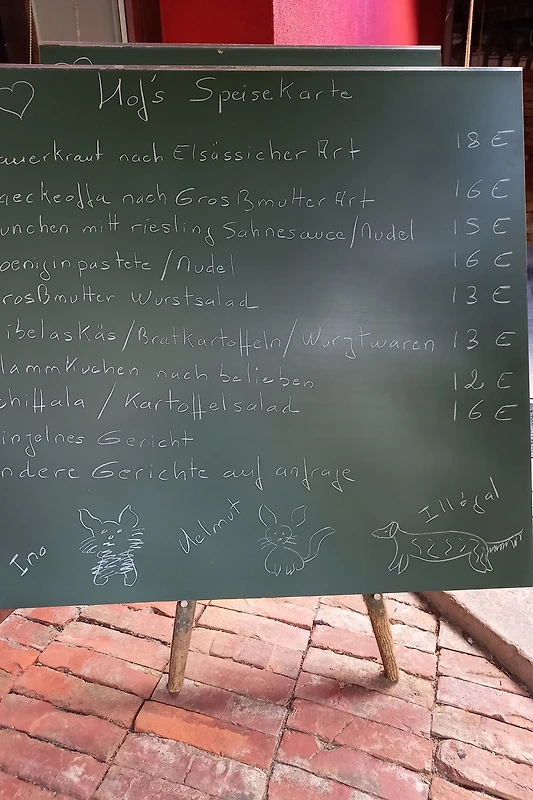 Hof's Speisekarte
auerkraut nach Elsässicher Art 18 €
aeckeoffa nach Grosßmutter Art 16 €
unchen mitt riesling Sahnesauce/Nudel 15 €
oeniginpastete/Nudel 16 €
rosßmutter Wurstsalad 13 €
ibelasKäs/Bratkartoffeln/Wurztwaren 13 €
lammKuchen nach belieben 12 €
chiffala / Kartoffelsalad 16 €
inzelnes Gericht
ndere Gerichte auf anfrage
Ino
Helmut